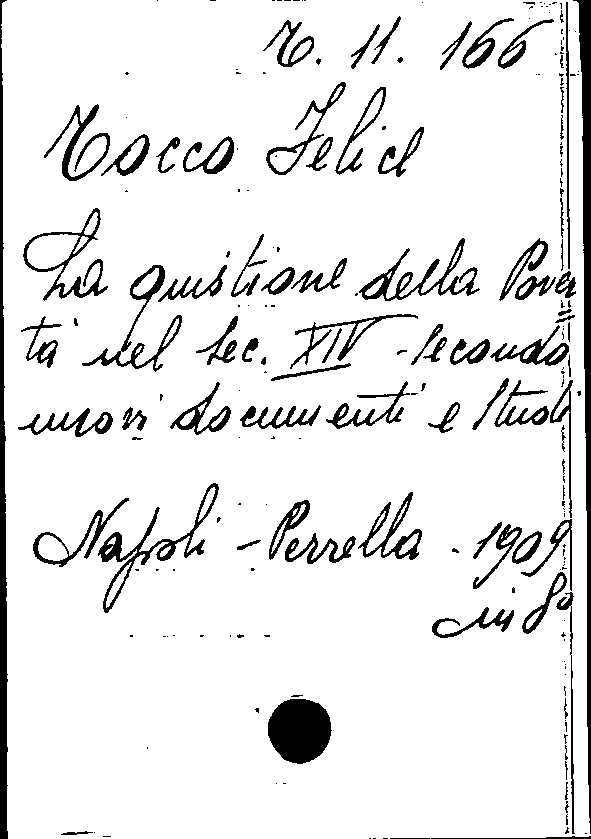 T. 11. 166
Tocco Felice
La quistione della Pover=
tà nel sec. XIV - secondo
nuovi documenti e studi
Napoli - Perrella - 1909
in 8°